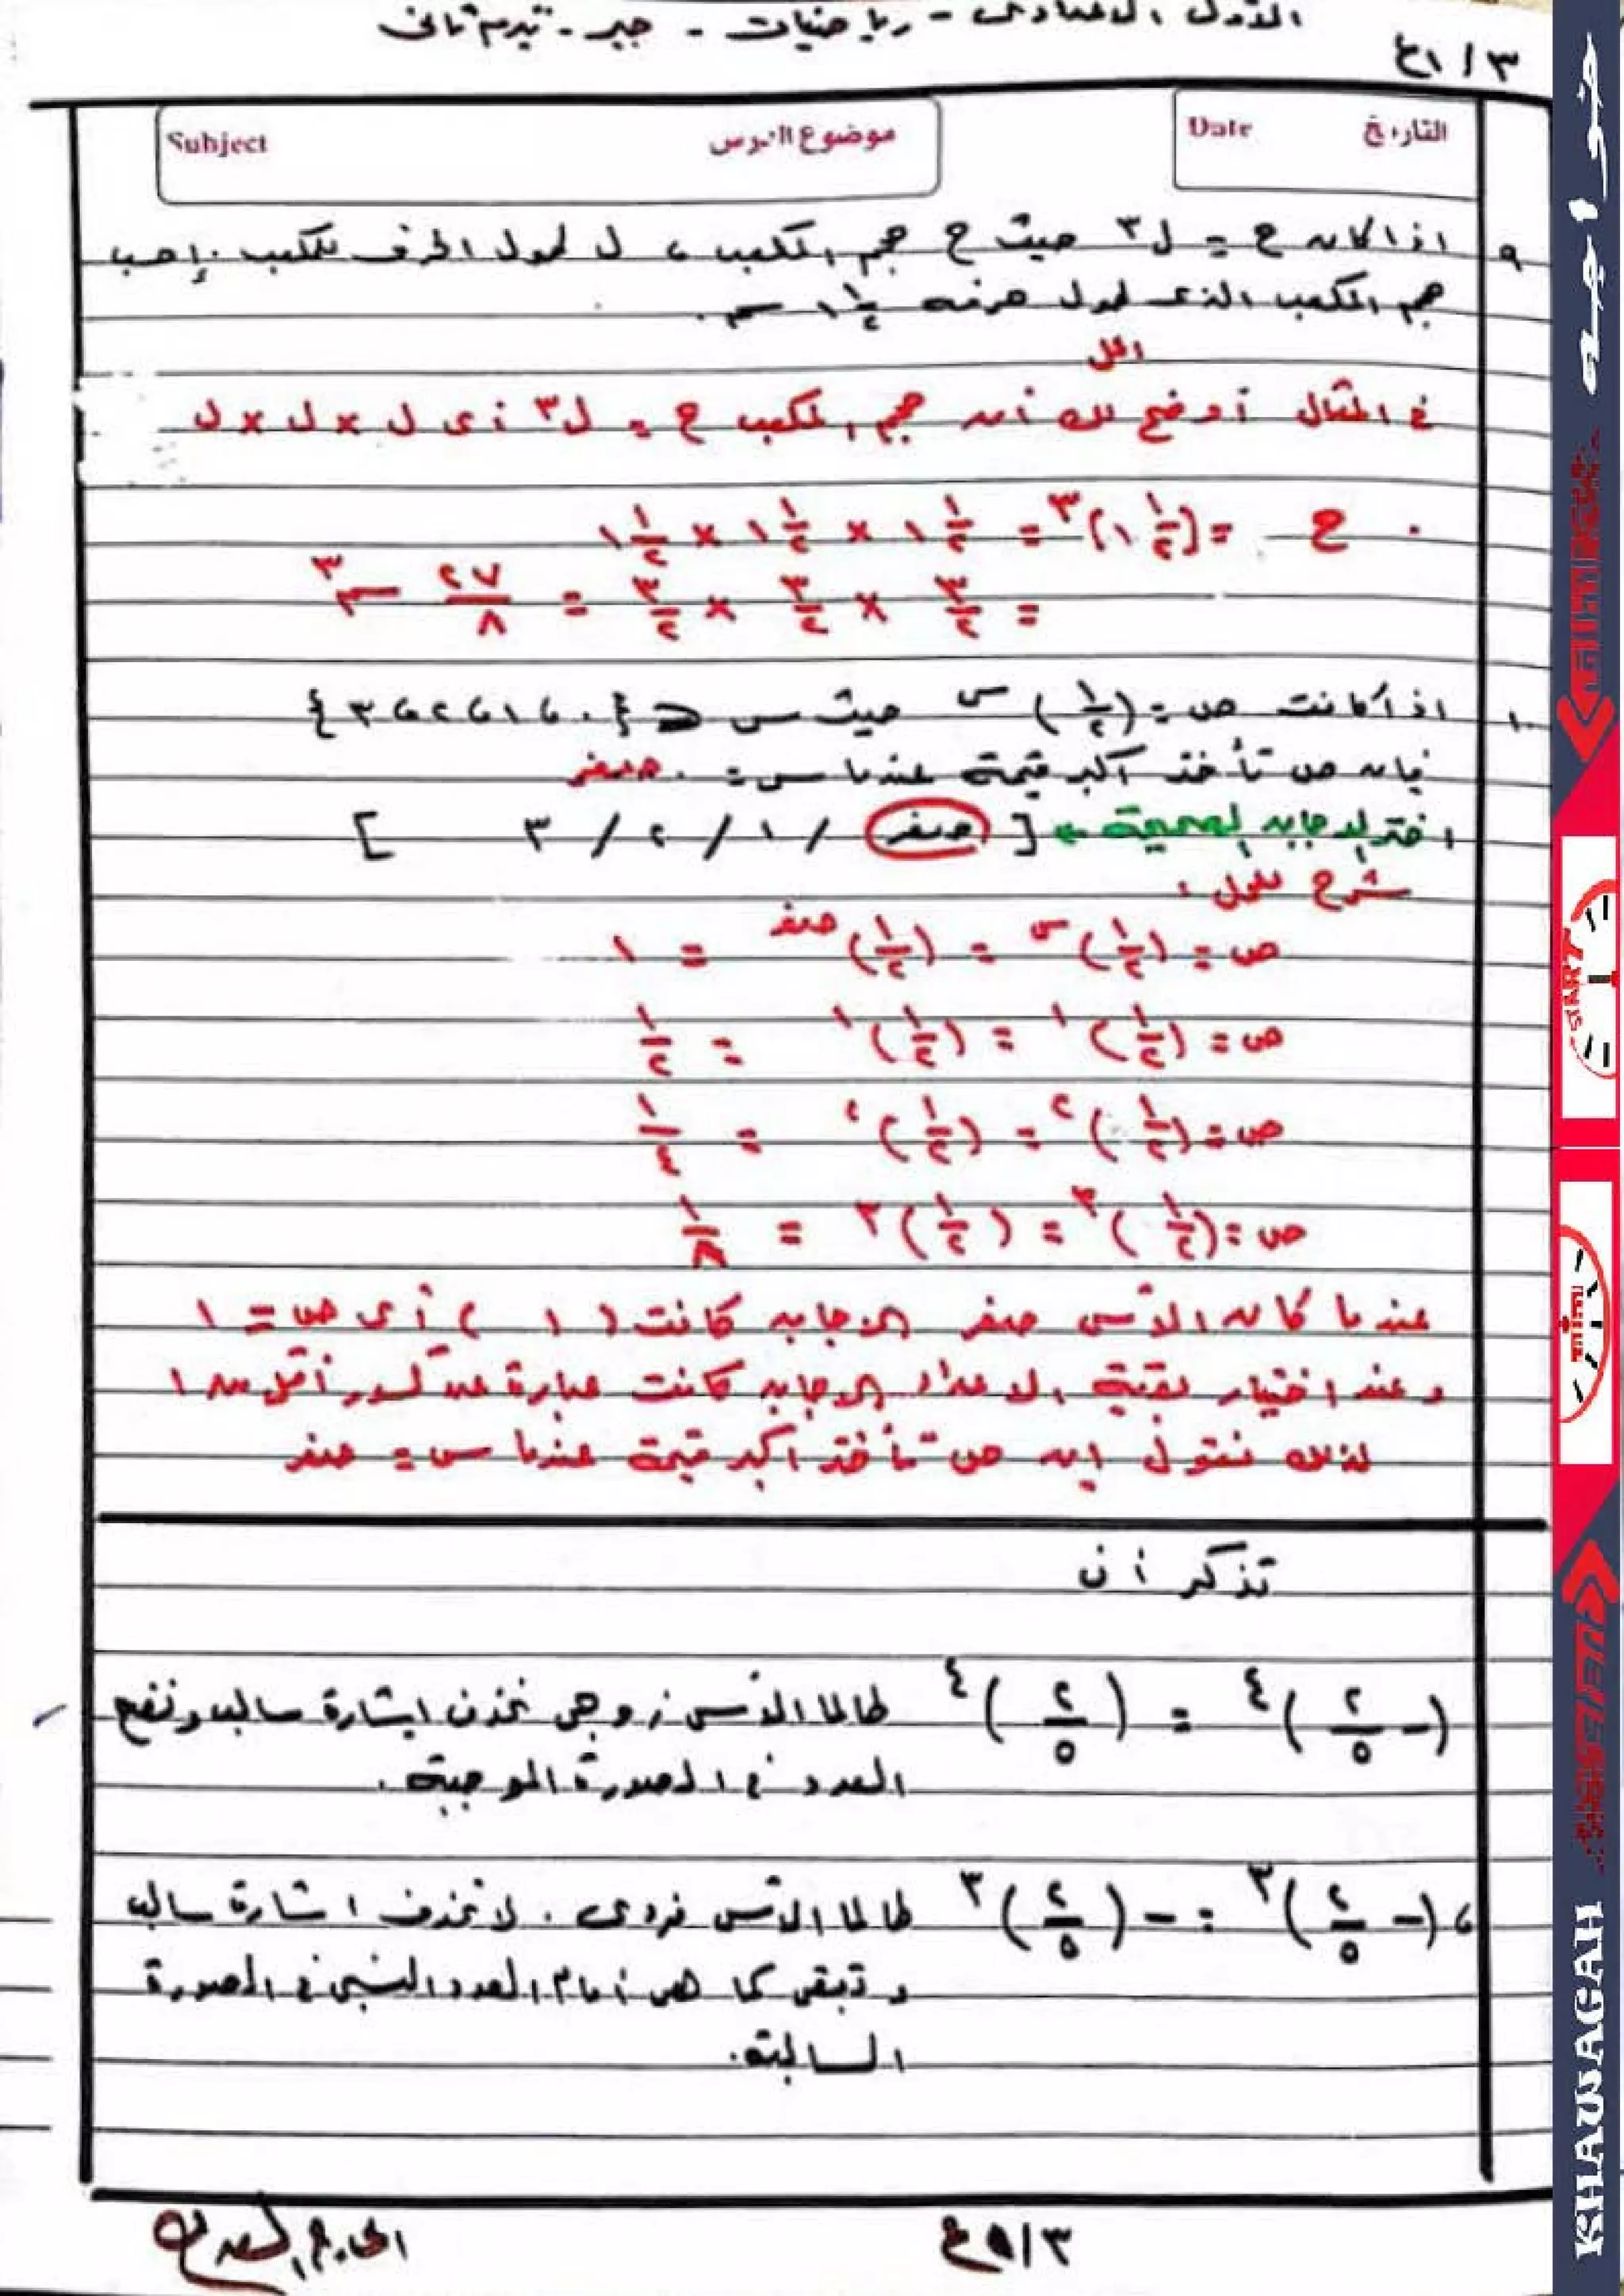 الأول الاعدادى - رياضيات - جبر - تيرم تانى
٣/١ع
التاريخ Date
موضوع الدرس Subject
٩ اذا كان ح = ل٣ حيث ح حجم المكعب ، ل طول الحرف للمكعب . إحسب
حجم المكعب الذى طول حرفه ١ ١/٢ سم .
الحل
فى المثال أوضح لك أن حجم المكعب ح = ل٣ أى ل × ل × ل
ح = (١ ١/٢)٣ = ١ ١/٢ × ١ ١/٢ × ١ ١/٢
= ٣/٢ × ٣/٢ × ٣/٢ = ٢٧/٨ سم٣
١٠ اذا كانت ص = (١/٢)س حيث س ∈ {٠ ، ١ ، ٢ ، ٣}
فإن ص تأخذ أكبر قيمة عندما س = . صفر
اختر الاجابه الصحيحة ← [ صفر / ١ / ٢ / ٣ ]
شرح للحل :
ص = (١/٢)س = (١/٢)صفر = ١
ص = (١/٢)١ = (١/٢)١ = ١/٢
ص = (١/٢)٢ = (١/٢)٢ = ١/٤
ص = (١/٢)٣ = (١/٢)٣ = ١/٨
عندما كان الأس صفر الاجابه كانت ( ١ ) أى ص = ١
وعند اختيار بقية الاعداد الاجابه كانت عبارة عن كسور أقل من ١
لذلك نقول إن ص تأخذ اكبر قيمة عندما س = صفر
تذكر أن
(-٢/٥)٤ = (٢/٥)٤ طالما الأس زوجى نحذف اشارة سالب ونضع
العدد فى الصورة الموجبة .
، (-٢/٥)٣ = -(٢/٥)٣ طالما الأس فردى . لا نحذف اشارة سالب
و تبقى كما هى أمام العدد النسبى فى الصورة
السالبة.
٣/٩ع
خواجه
START
KHAWAGAH